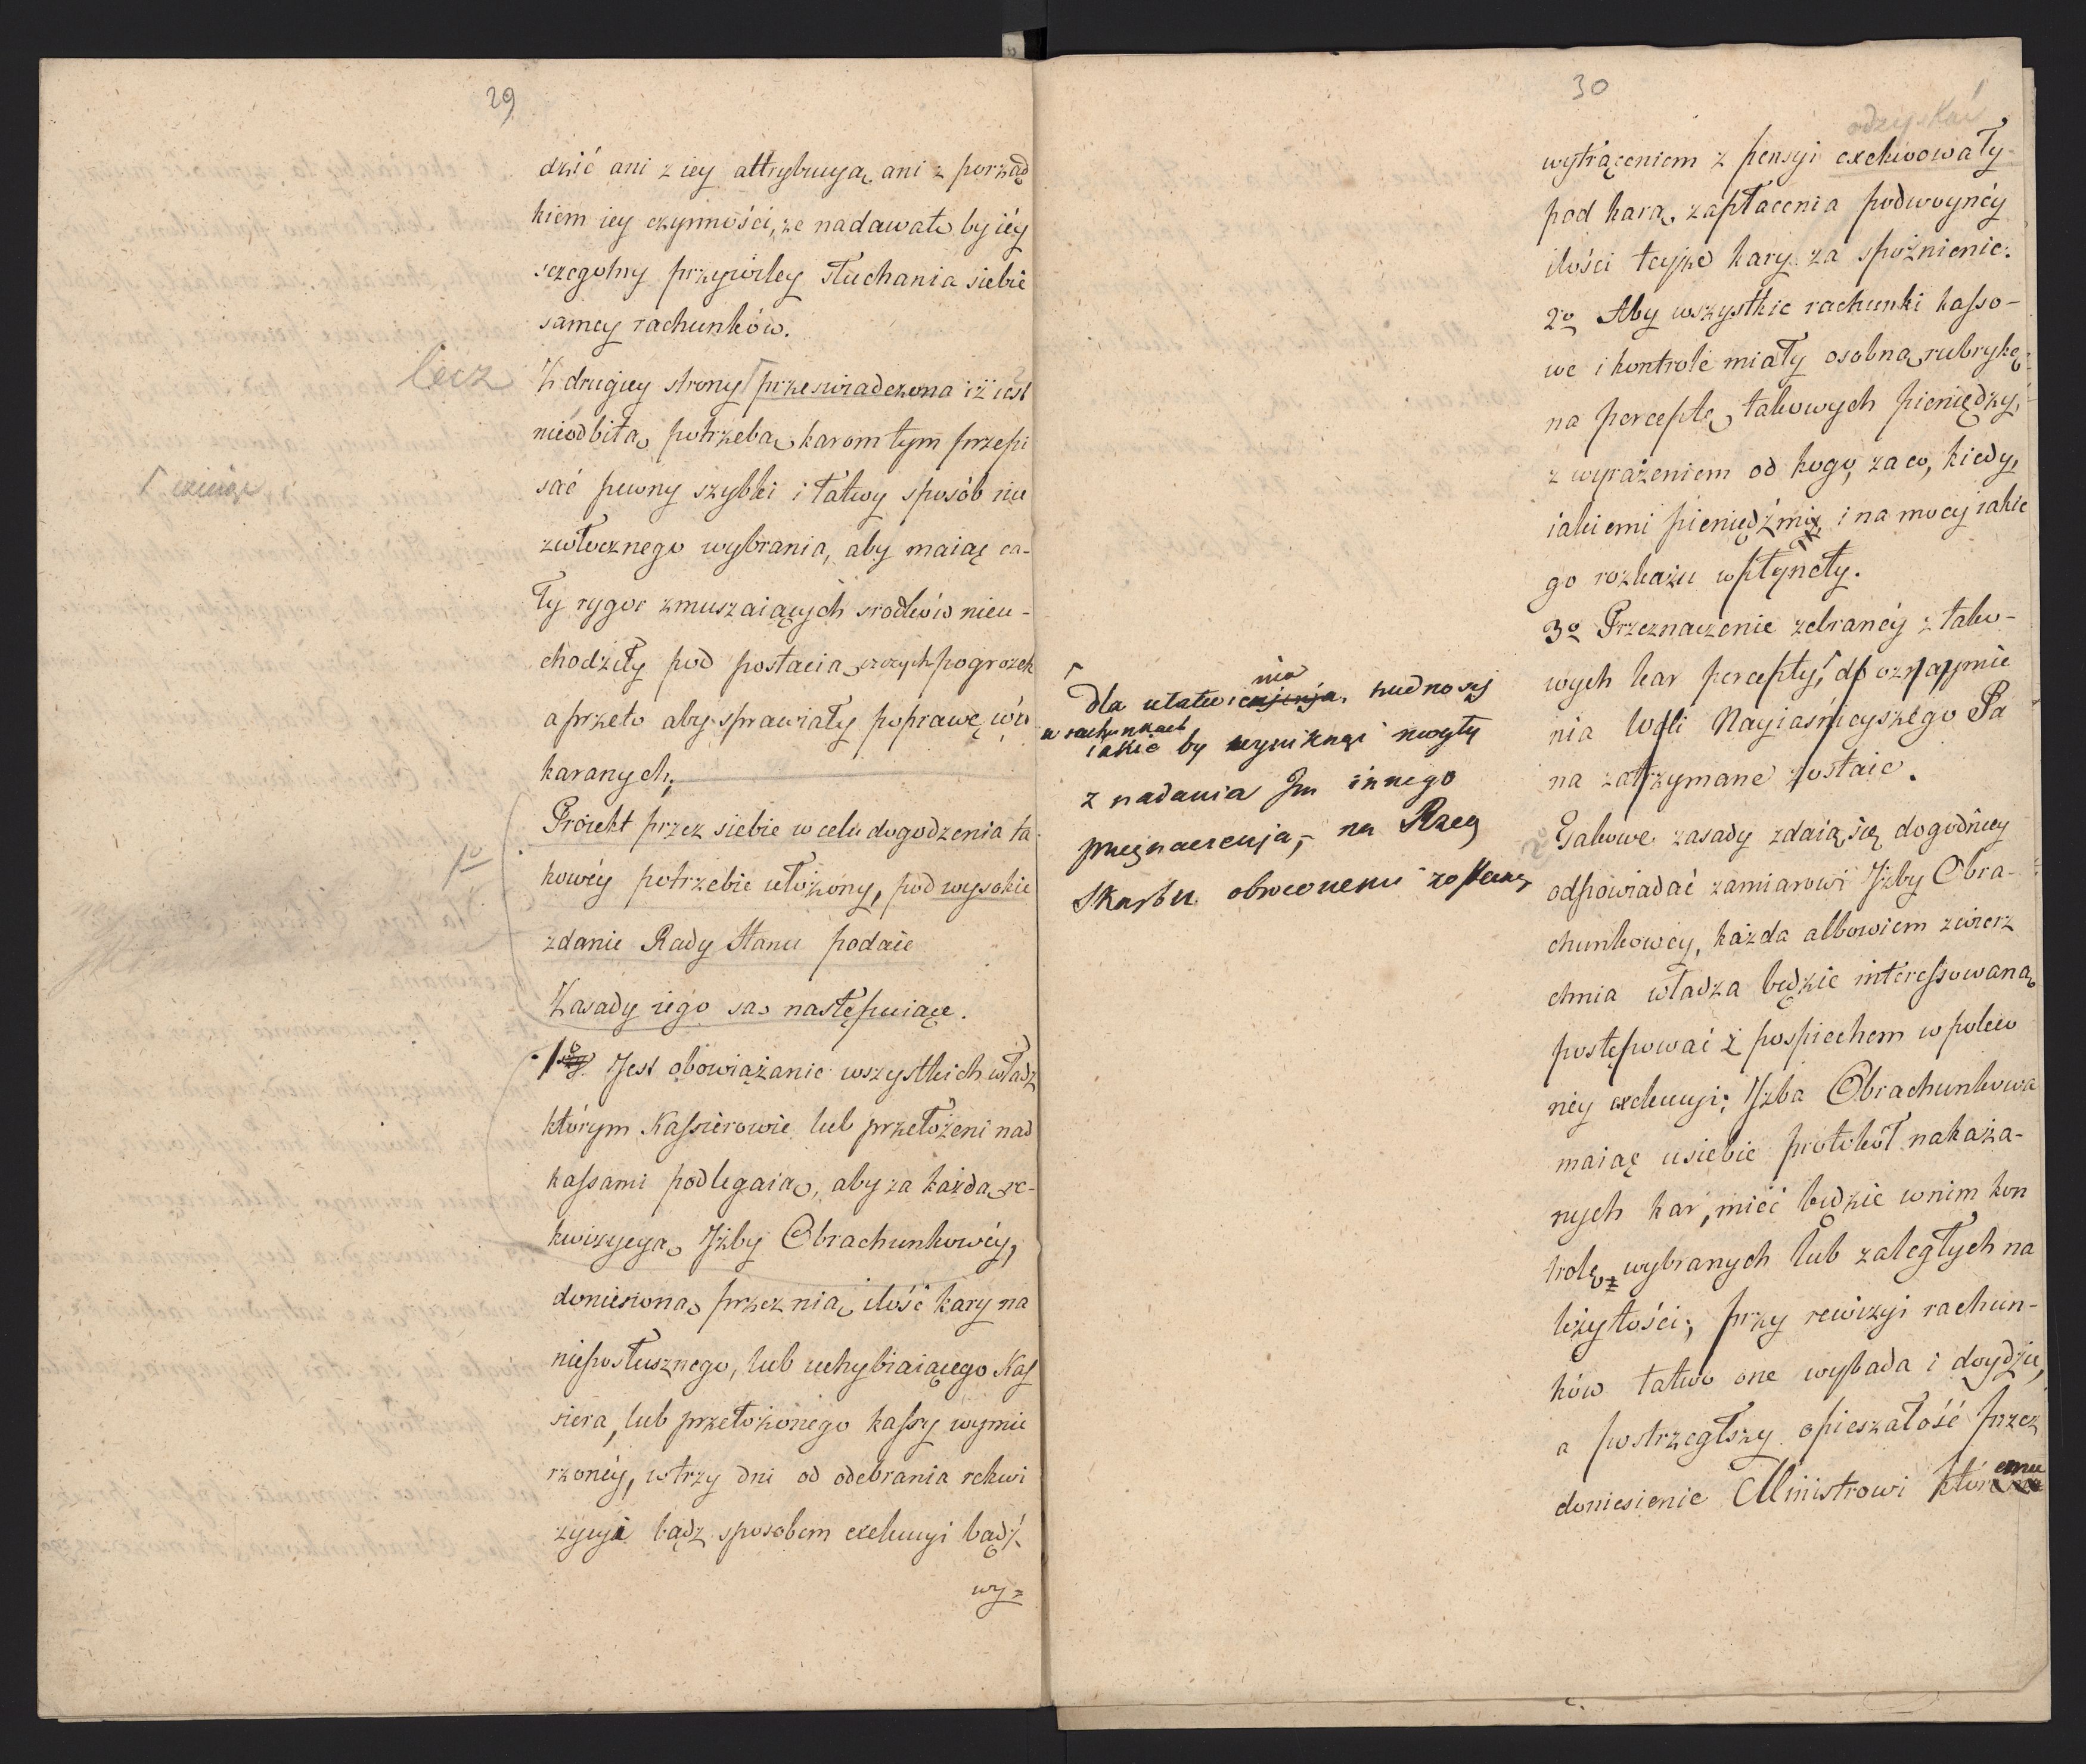 29
dzić ani z iey attrybucyą, ani z porząd
kiem iey czynności, że nadawało by iéy
szczegolny przywiley słuchania siebie
samey rachunków.
lecz
Z drugiey strony ⌈ przeswiadczona iż iest
nieodbitą potrzebą karom tym przepi
sać pewny szybki i łatwy sposób nie
zwłocznego wybrania, aby maiąc ca-
ły rygor zmuszaiących srodków nieu-
chodziły pod postacią czczych pogrozek
a przeto aby sprawiały poprawę w u
karanych;
Proiekt przez siebie w celu dogodzenia ta
1º
kowéy potrzebie ułożony, pod wysokie
zdanie Rady Stanu podaie
Zasady iego są następuiące.
1º Jest obowiązanie wszystkich władz
którym Kassierowie lub przełożeni nad
kassami podlegaią, aby za każdą re-
kwizycyą Izby Obrachunkowéy,
doniesioną przez nią ilość kary na
nieposłusznego, lub uchybiaiącego Kas
siera, lub przełożonego kassy wymie
rzonéy, w trzy dni od odebrania rekwi
zycyi bądz sposobem exekucyi bądź
wy=
30
odzyskać
wytrąceniem z pensyi exekwowały
pod karą zapłacenia podwoynéy
ilości teyże kary za spóźnienie.
2º Aby wszystkie rachunki kasso-
we i kontrole miały osobną rubrykę
na perceptę takowych pieniędzy,
z wyrażeniem od kogo, za co, kiedy,
iakiemi pieniędźmi, i na mocy iakie
go rozkazu wpłynęły.
3º Przeznaczenie zebranéy z tako-
wych kar percepty, ⌈ do oznaymie
nia Woli Nayiaśnieyszego Pa
na zatrzymane zostaie.
⌈
dla ułatwienia trudności
w rachunkach
iakie by wyniknąć mogły
z nadania Im innego
przeznaczenia, na Rzecz
Skarbu obrócone zostaną
Takowe zasady zdaią się dogodniey
odpowiadać zamiarowi Izby Obra-
chunkowey, każda albowiem zwierz
chnia władza będzie interessowaną
postępować z pospiechem w poleco
ney exekucyi; Izba Obrachunkowa
maiąc u siebie protokół nakaza-
nych kar, mieć będzie w nim kon
trolę wybranych lub zaległych na
leżytości, przy rewizyi rachun-
ków łatwo one wybada i doydzie,
a postrzegłszy opieszałość przez
doniesienie Ministrowi któremu